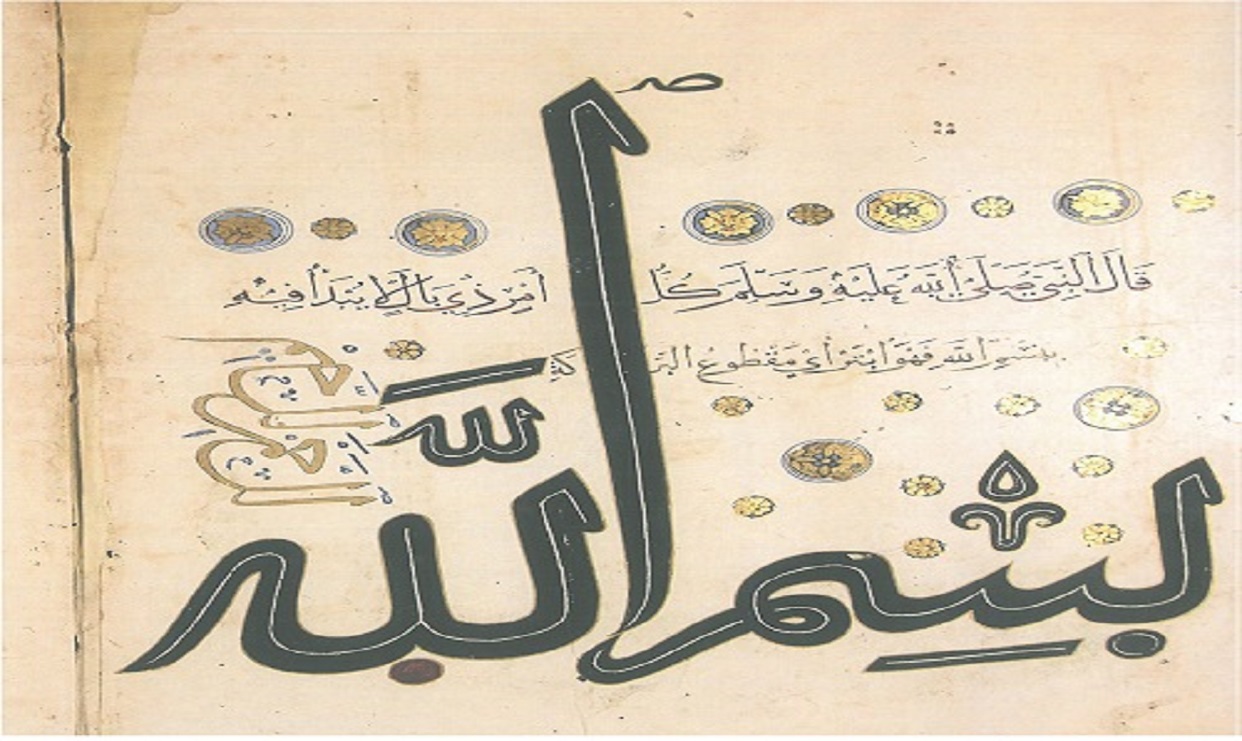 صـ
قَالَ النَّبِيُّ صَلَّى اللَّهُ عَلَيْهِ وَسَلَّمَ كُلُّ أَمْرٍ ذِي بَالٍ لَا يُبْدَأُ فِيهِ
بِسْمِ اللَّهِ فَهُوَ أَبْتَرُ أَيْ مَقْطُوعُ الْبَرَكَةِ
بِسْمِ اللَّهِ
الرَّحْمَنِ الرَّحِيمِ